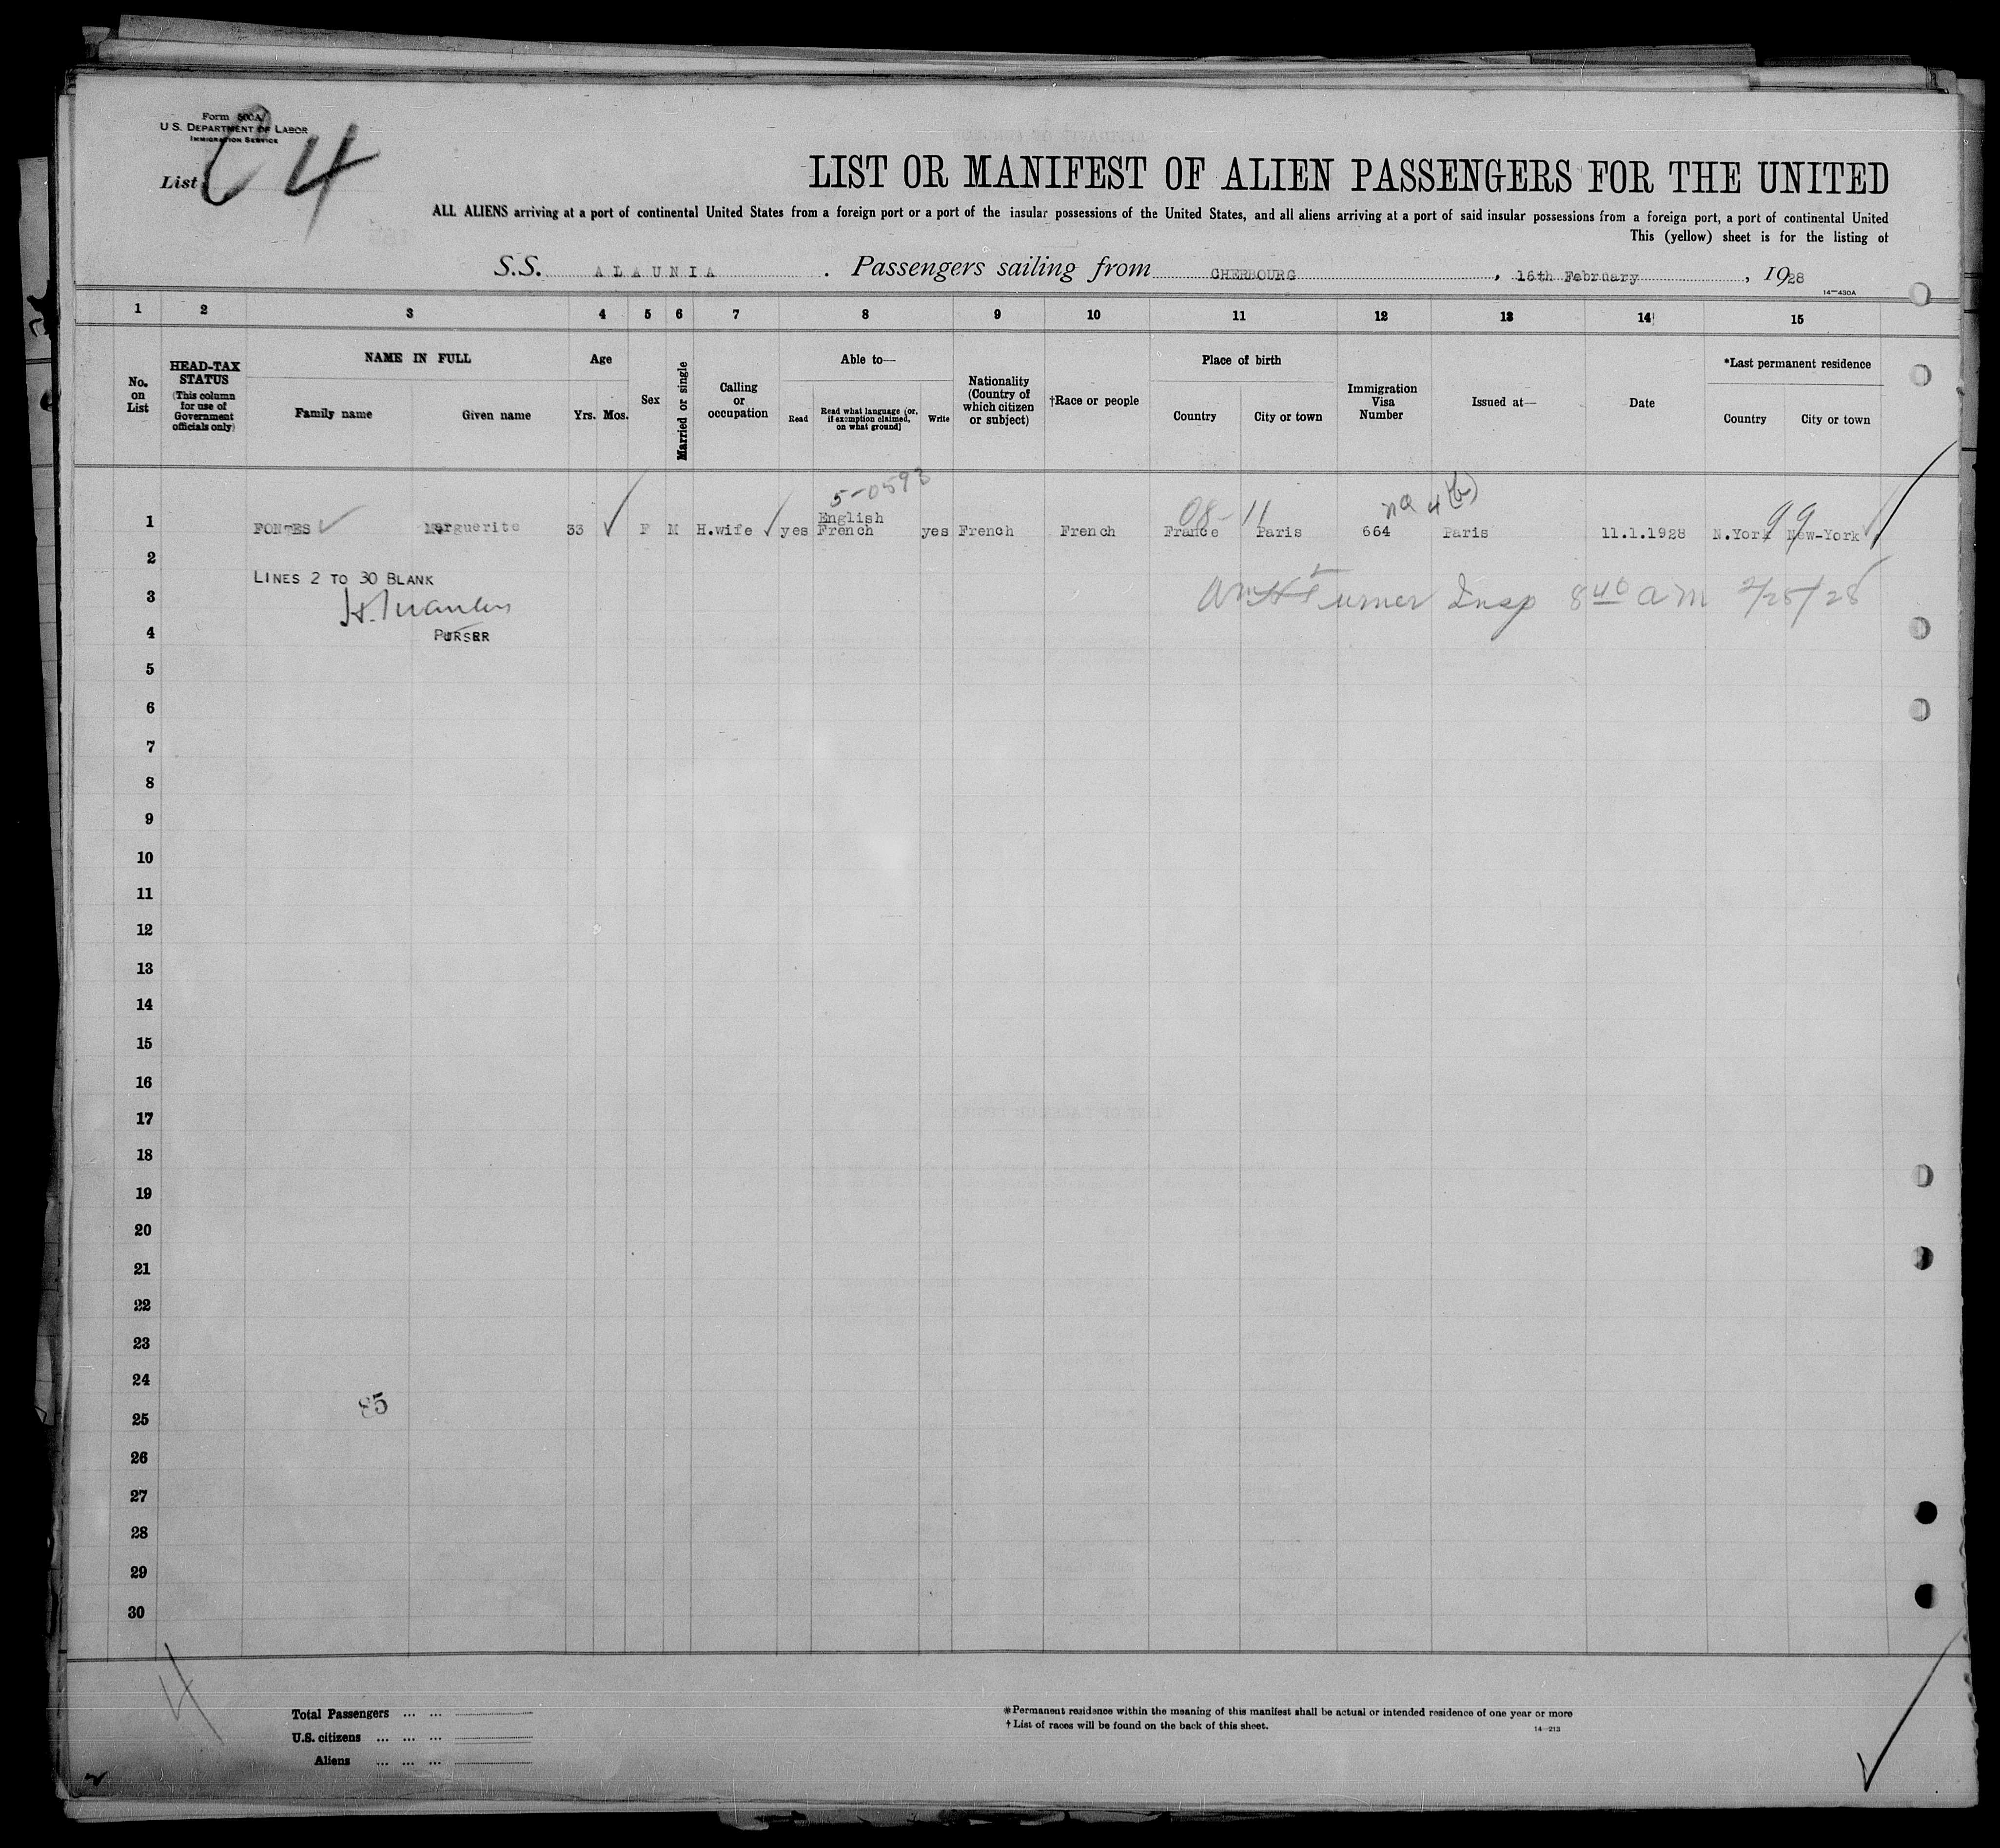 Form 500A
U.S. DEPARTMENT OF LABOR
IMMIGRATION SERVICE
List 4
LIST OR MANIFEST OF ALIEN PASSENGERS FOR THE UNITED
ALL ALIENS arriving at a port of continental United States from a foreign port or a port of the insular possessions of the United States, and all aliens arriving at a port of said insular possessions from a foreign port, a port of continental United
This (yellow) sheet is for the listing of
S.S. ALAUNIA. Passengers sailing from CHERBOURG, 16th February, 1928
14—430A
1 2 3 4 5 6 7 8 9 10 11 12 13 14 15
No. on List
HEAD-TAX STATUS (This column for use of Government officials only)
NAME IN FULL
Family name Given name
Age
Yrs. Mos.
Sex
Married or single
Calling or occupation
Able to—
Read Read what language (or, if exemption claimed, on what ground) Write
Nationality (Country of which citizen or subject)
†Race or people
Place of birth
Country City or town
Immigration Visa Number
Issued at—
Date
*Last permanent residence
Country City or town
5-0593
08-11 na 4(b) 99
English
1 FONTES Marguerite 33 F M H.wife yes French yes French French France Paris 664 Paris 11.1.1928 N.York New-York
2
LINES 2 TO 30 BLANK
3 Turner Insp 8 40 am 2/28/28
4 PURSER
5
6
7
8
9
10
11
12
13
14
15
16
17
18
19
20
21
22
23
24
85
25
26
27
28
29
30
4
Total Passengers ... ...
U.S. citizens ... ... ...
Aliens ... ... ...
*Permanent residence within the meaning of this manifest shall be actual or intended residence of one year or more
†List of races will be found on the back of this sheet. 14—213